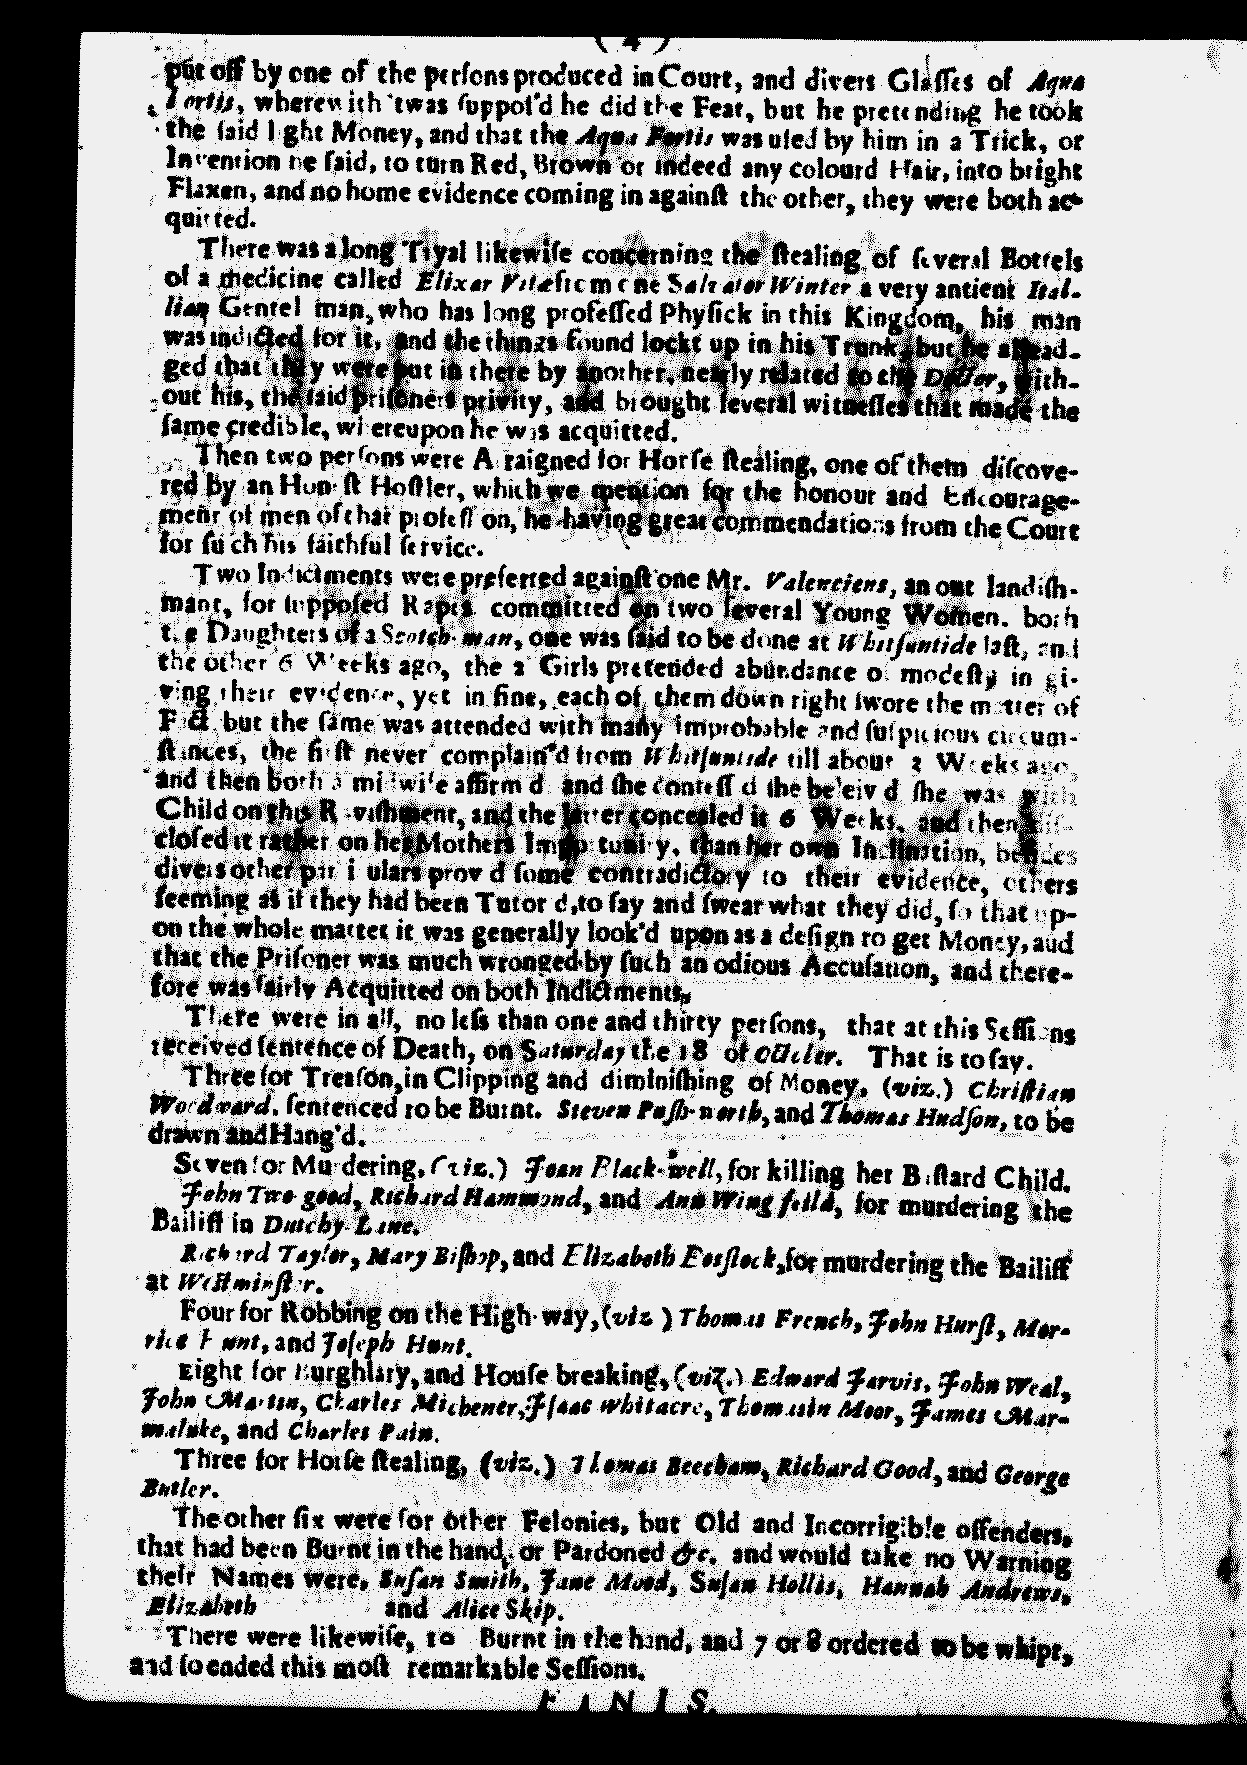 ( 4 )
put off by one of the perſons produced in Court, and divers Glaſſes of Aqua
Fortis, wherewith 'twas ſuppoſ'd he did the Feat, but he pretending he took
the ſaid light Money, and that the Aqua Fortis was uſed by him in a Trick, or
Invention he ſaid, to turn Red, Brown or indeed any colourd Hair, into bright
Flaxen, and no home evidence coming in againſt the other, they were both ac-
quitted.
There was a long Tryal likewiſe concerning the ſtealing of ſeveral Bottels
of a medicine called Elixar Vitæ from one Salvator Winter a very antient Ital-
lian Gentel man, who has long profeſſed Phyſick in this Kingdom, his man
was indicted for it, and the things found lockt up in his Trunk, but he allead-
ged that they were put in there by another, nearly related to the Doctor, with-
out his, the ſaid priſoners privity, and brought ſeveral witneſſes that made the
ſame credible, whereupon he was acquitted.
Then two perſons were Arraigned for Horſe ſtealing, one of them diſcove-
red by an Honeſt Hoſtler, which we mention for the honour and Encourage-
ment of men of that profeſſion, he having great commendations from the Court
for ſuch his faithful ſervice.
Two Indictments were preferred againſt one Mr. Valenciens, an out landiſh-
mant, for ſuppoſed Rapes committed on two ſeveral Young Women. both
the Daughters of a Scotch-man, one was ſaid to be done at Whitſuntide laſt, and
the other 6 Weeks ago, the 2 Girls pretended abundance of modeſty in gi-
ving their evidence, yet in fine, each of them down right ſwore the matter of
Fact but the ſame was attended with many improbable and ſuſpicious circum-
ſtances, the firſt never complain'd from Whitſuntide till about 2 Weeks ago,
and then both a midwife affirm'd and ſhe confeſſ'd ſhe beleiv'd ſhe was with
Child on this Raviſhment, and the latter concealed it 6 Weeks, and then diſ-
cloſed it rather on her Mothers Importunity, than her own Inclination, beſides
divers other particulars prov'd ſome contradictory to their evidence, others
ſeeming as if they had been Tutor'd, to ſay and ſwear what they did, ſo that up-
on the whole matter it was generally look'd upon as a deſign to get Money, aud
that the Priſoner was much wronged by ſuch an odious Accuſation, and there-
fore was fairly Acquitted on both Indictments,
There were in all, no leſs than one and thirty perſons, that at this Seſſions
received ſentence of Death, on Saturday the 18 of October. That is to ſay.
Three for Treaſon, in Clipping and diminiſhing of Money, (viz.) Chriſtian
Woodward. ſentenced to be Burnt. Steven Puſh-north, and Thomas Hudſon, to be
drawn and Hang'd.
Seven for Murdering. (viz.) Joan Black-well, for killing her Baſtard Child.
John Two-good, Richard Hammond, and Ann Wingfeild, for murdering the
Bailiff in Dutchy-Lane.
Richard Taylor, Mary Biſhop, and Elizabeth Eoſtock, for murdering the Bailiff
at Weſtminſter.
Four for Robbing on the High-way, (viz ) Thomas French, John Hurſt, Mor-
rice Hunt, and Joſeph Hunt.
Eight for Burghlary, and Houſe breaking, (viz.) Edward Jarvis, John Weal,
John Martin, Charles Michener, Iſaac Whitacre, Thomasin Moor, James Mar-
maluke, and Charles Pain.
Three for Horſe ſtealing, (viz.) Thomas Beecham, Richard Good, and George
Butler.
The other ſix were for other Felonies, but Old and Incorrigible offenders,
that had been Burnt in the hand, or Pardoned &c. and would take no Warning
their Names were, Suſan Smith, Jane Mood, Suſan Hollis, Hannah Andrews,
Elizabeth and Alice Skip.
There were likewiſe, 10 Burnt in the hand, and 7 or 8 ordered to be whipt,
and ſo ended this moſt remarkable Seſſions.
F I N I S.